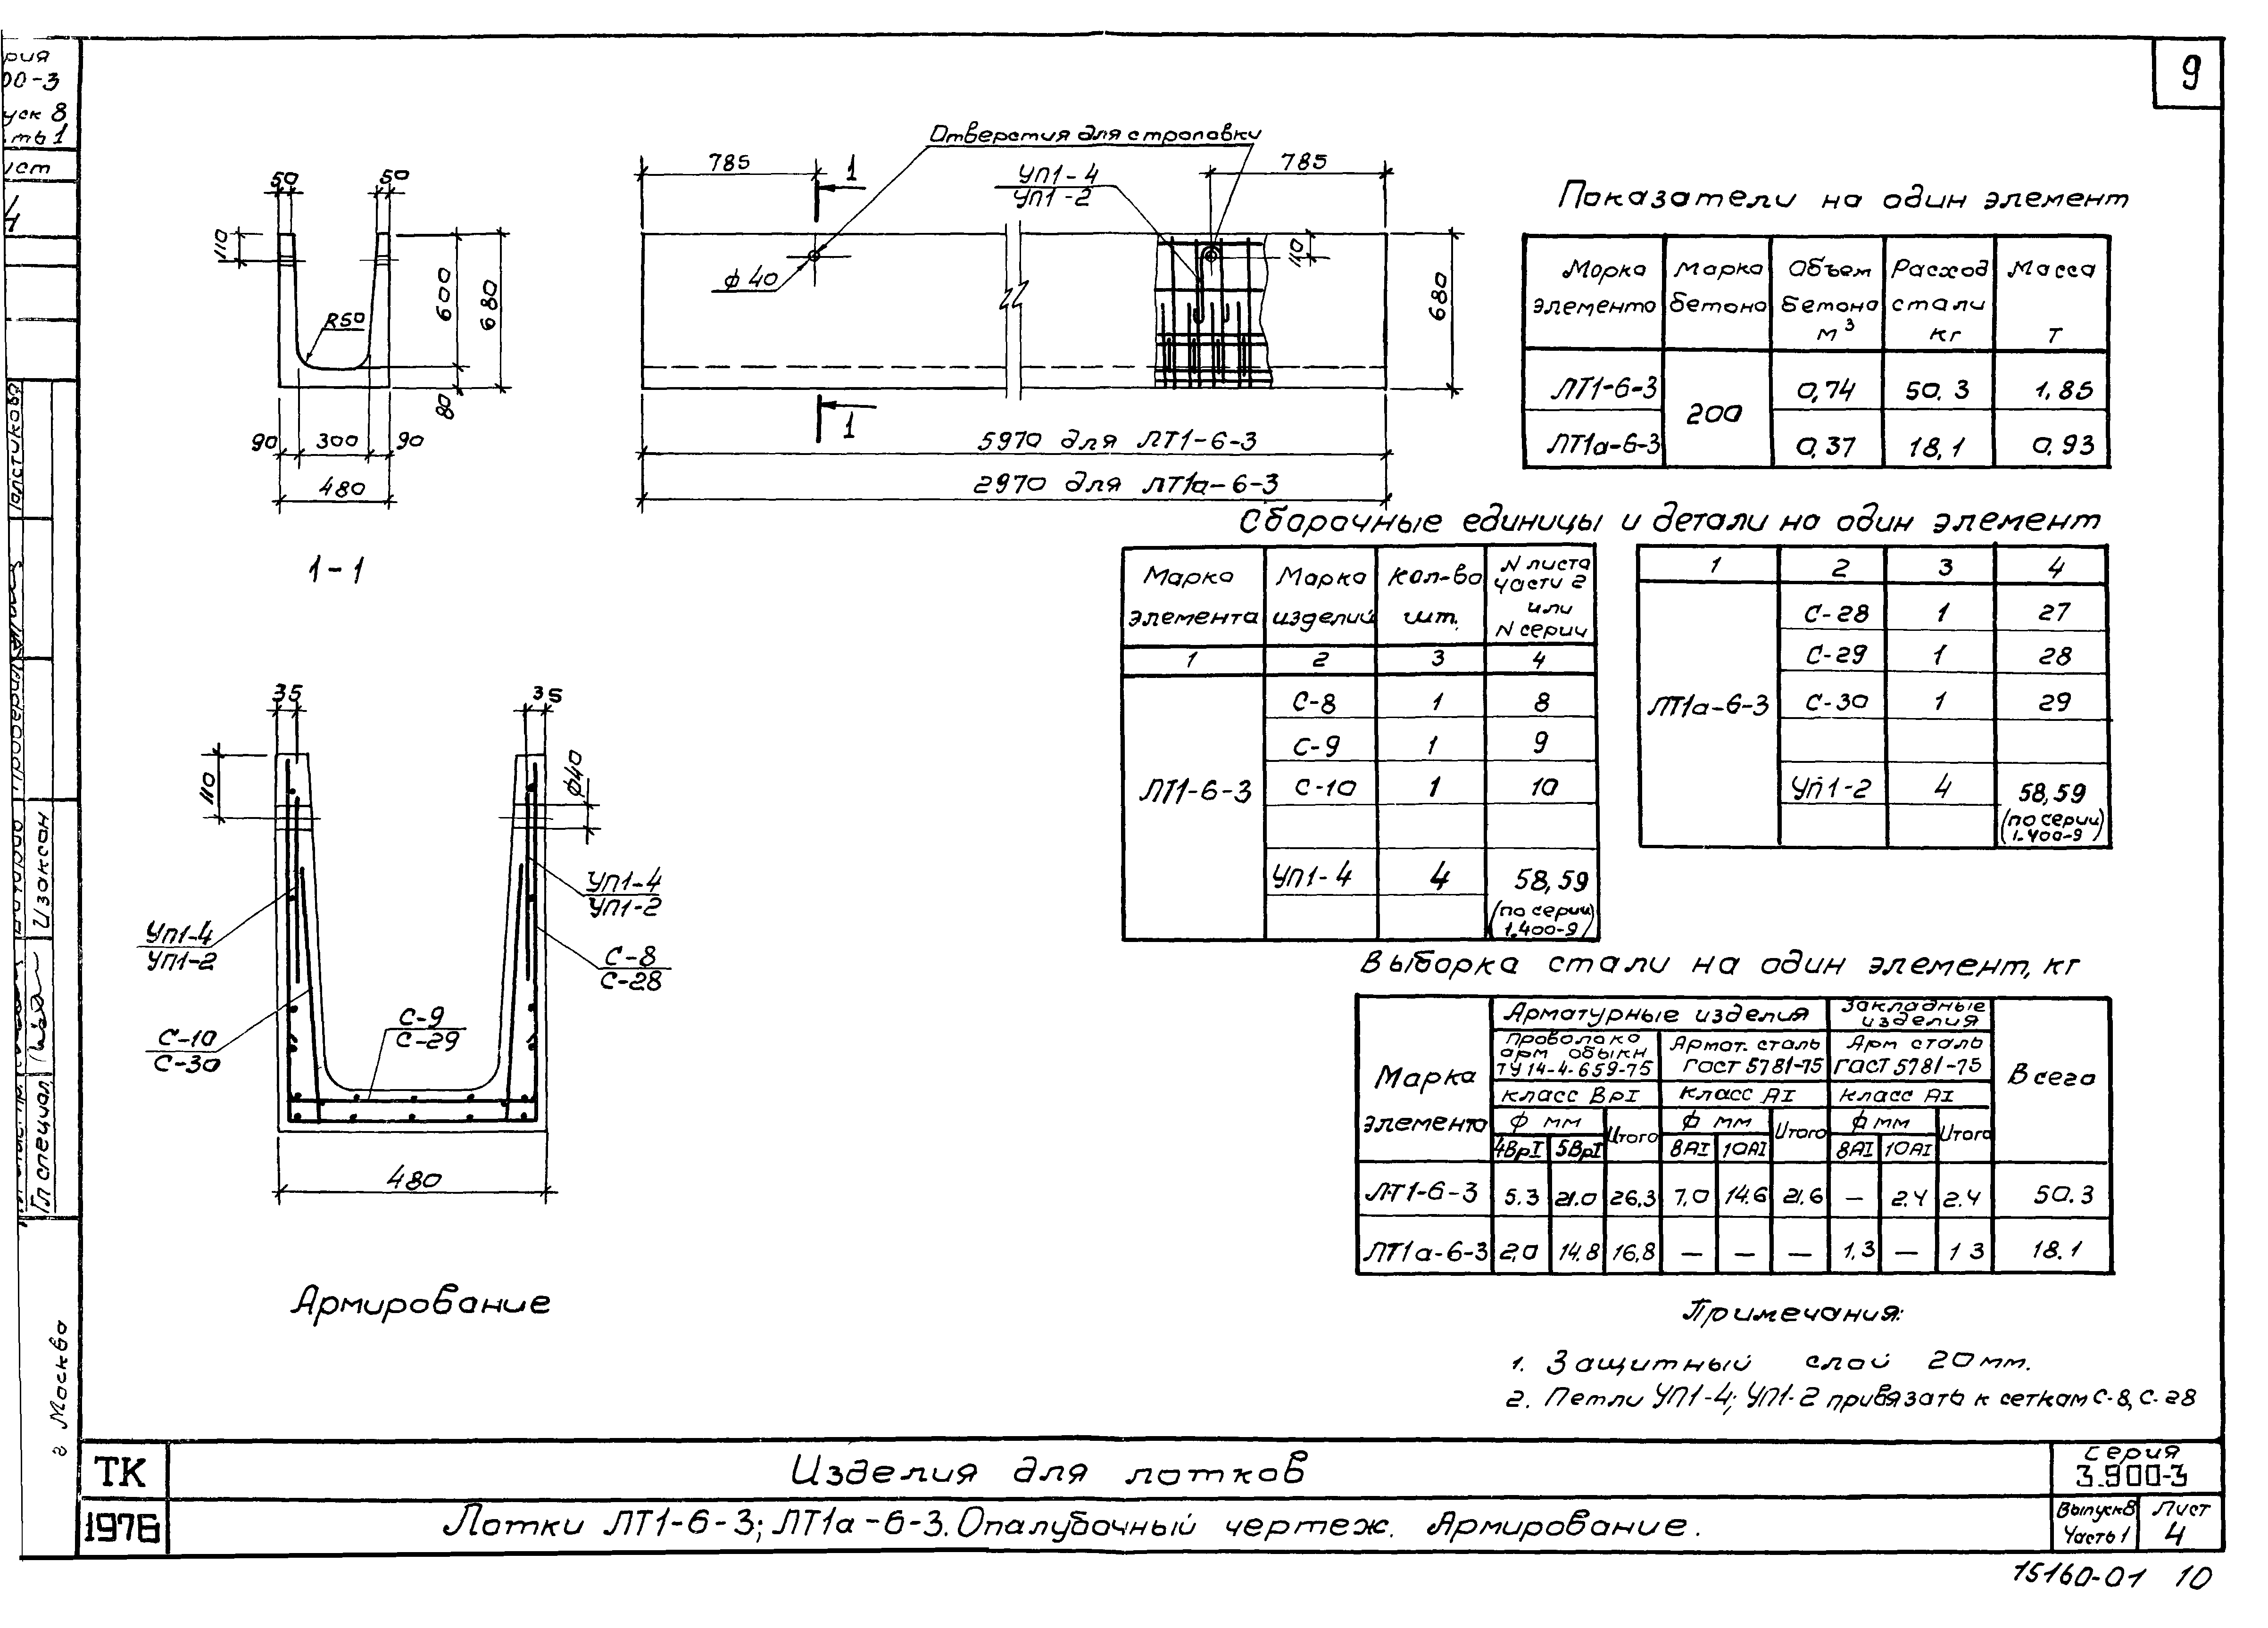 рия
00-3
уск 8
ть 1
ист
9
Отверстия для строповки
785
1
УП1-4
УП1-2
785
50
50
110
R50
600
680
80
90
300
90
480
1-1
ф 40
110
680
1
5970 для ЛТ1-6-3
2970 для ЛТ1а-6-3
Показатели на один элемент
Марка элемента
Марка бетона
Объем бетона м³
Расход стали кг
Масса т
ЛТ1-6-3
200
0,74
50.3
1,85
ЛТ1а-6-3
0,37
18,1
0,93
Сборочные единицы и детали на один элемент
Марка элемента
Марка изделий
Кол-во шт.
N листа части 2 или N серии
1 2 3 4
ЛТ1-6-3
С-8 1 8
С-9 1 9
С-10 1 10
УП1-4 4 58,59
(по серии 1.400-9)
1 2 3 4
ЛТ1а-6-3
С-28 1 27
С-29 1 28
С-30 1 29
УП1-2 4 58,59
(по серии 1.400-9)
35
35
110
ф40
УП1-4
УП1-2
УП1-4
УП1-2
С-8
С-28
С-10
С-30
С-9
С-29
480
Армирование
Выборка стали на один элемент, кг
Марка элемента
Арматурные изделия
Закладные изделия
Всего
Проволока арм обыкн ТУ 14-4-659-75
Армат. сталь ГОСТ 5781-75
Арм сталь ГОСТ 5781-75
Класс ВрI
Класс АI
Класс АI
ф мм Итого ф мм Итого ф мм Итого
4ВрI 5ВрI 8АI 10АI 8АI 10АI
ЛТ1-6-3 5.3 21.0 26,3 7,0 14.6 21.6 — 2.4 2.4 50.3
ЛТ1а-6-3 2,0 14.8 16,8 — — — 1,3 — 1 3 18.1
Примечания:
1. Защитный слой 20мм.
2. Петли УП1-4; УП1-2 привязать к сеткам С-8, С-28
Изаксон
Гл специал
г Москва
ТК
1976
Изделия для лотков
Лотки ЛТ1-6-3; ЛТ1а-6-3. Опалубочный чертеж. Армирование.
Серия
3.900-3
Выпуск 8
Часть 1
Лист
4
15160-01 10